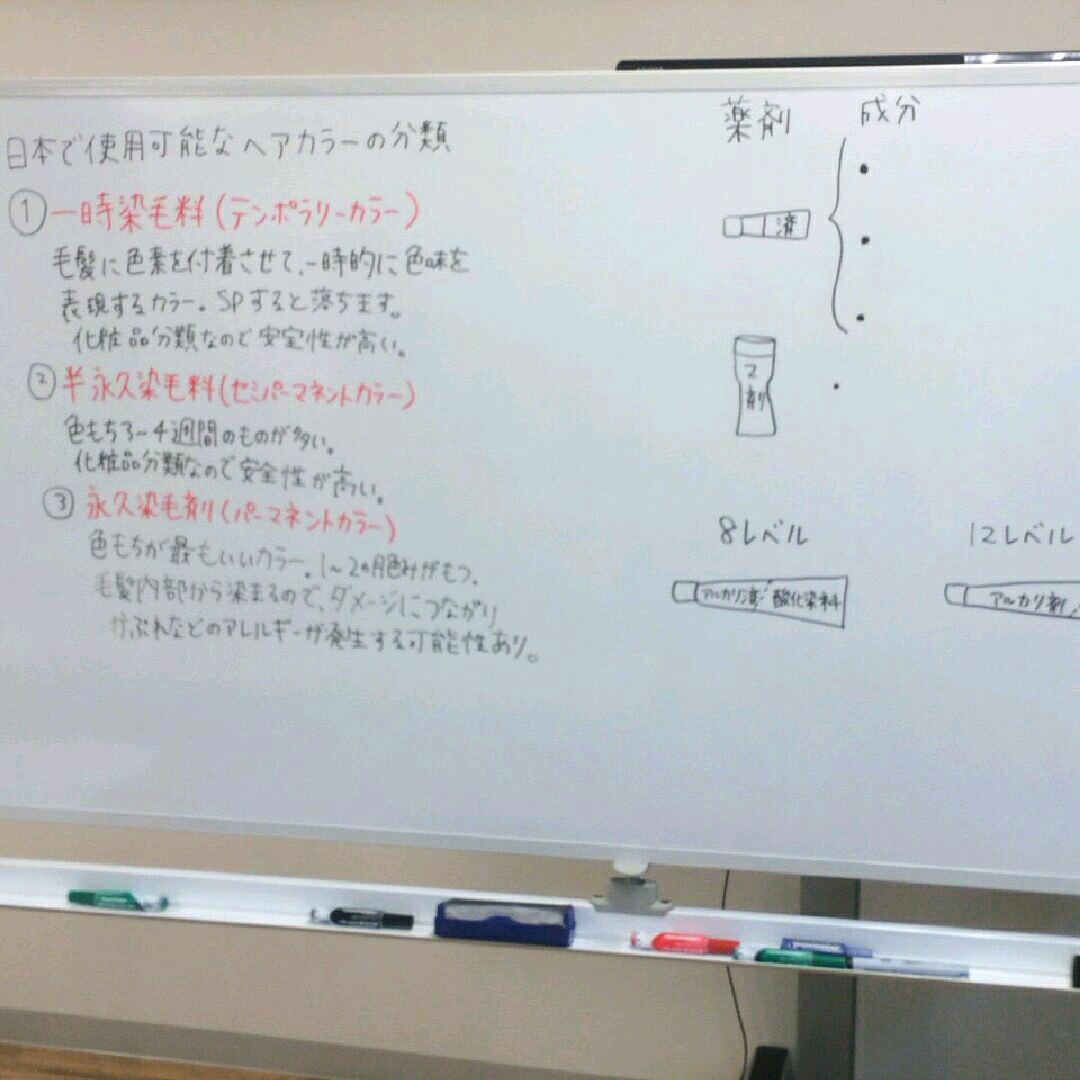 日本で使用可能なヘアカラーの分類
① 一時染毛料(テンポラリーカラー)
毛髪に色素を付着させて、一時的に色味を
表現するカラー。SPすると落ちます。
化粧品分類なので安定性が高い。
② 半永久染毛料(セミパーマネントカラー)
色もち3~4週間のものが多い。
化粧品分類なので安全性が高い。
③ 永久染毛剤(パーマネントカラー)
色もちが最もいいカラー。1~2ヵ月色みがもつ、
毛髪内部から染まるので、ダメージにつながり
かぶれなどのアレルギーが発生する可能性あり。
薬剤 成分
2剤
8レベル 12レベル
アルカリ剤 酸化染料 アルカリ剤